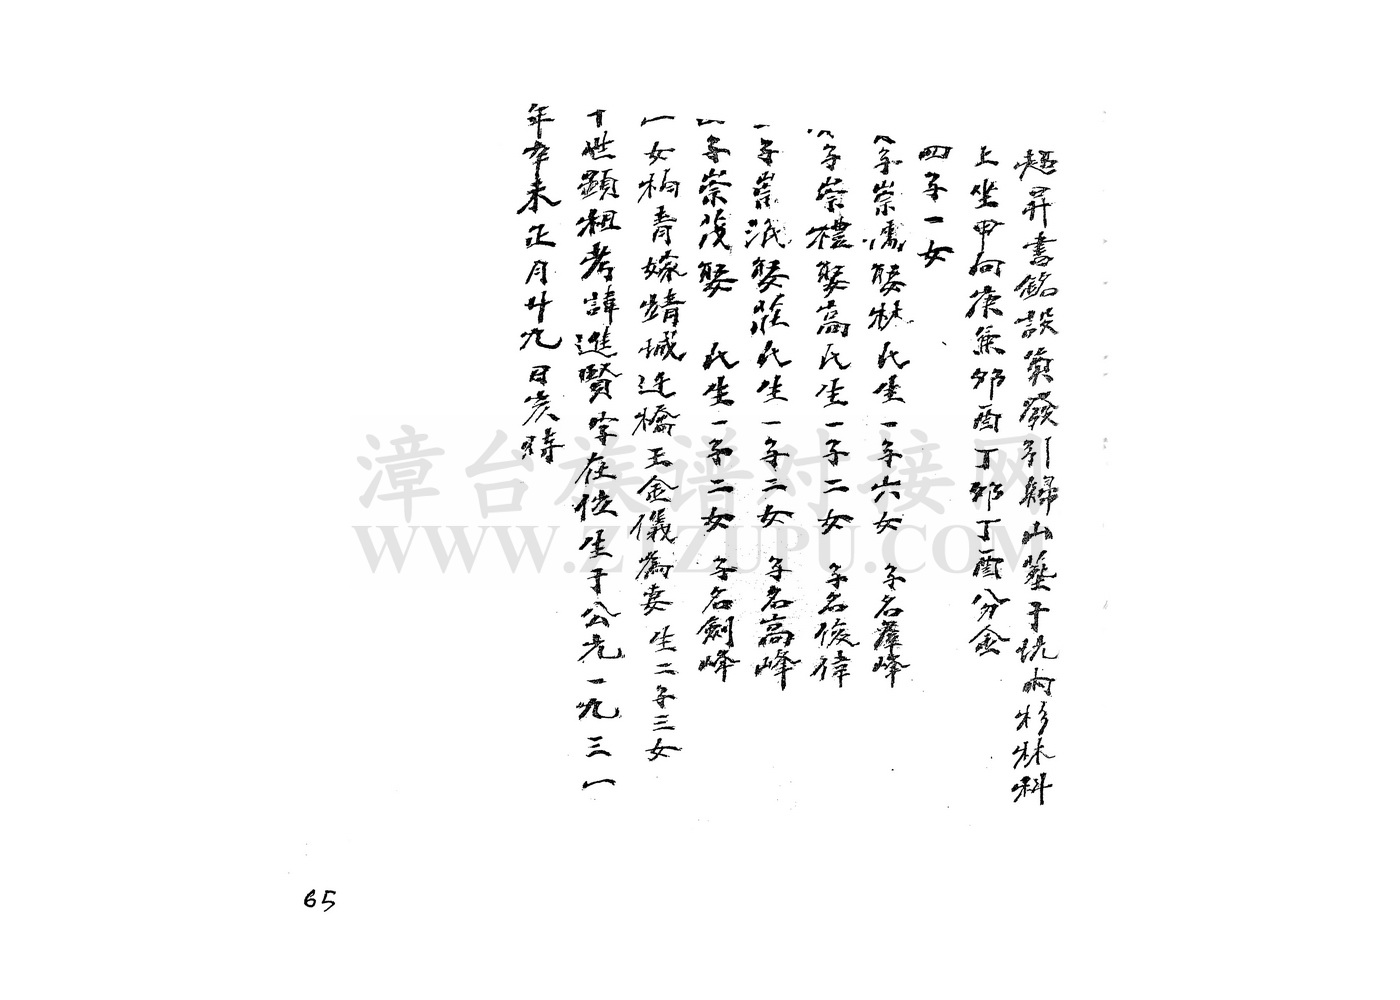 趙昇書銘設奠發引歸山塟于坑內杉林科
上坐甲向庚兼卯酉丁卯丁酉分金
四子一女
子崇儒娶林氏生一子六女 子名羣峰
子崇禮娶高氏生一子二女 子名俊偉
子崇泯娶莊氏生一子二女 子名高峰
子崇茂娶 氏生一子二女 子名劍峰
一女柄青嫁靖城迋橋王金儀為妻生二子三女
十世顯祖考諱進賢字在位生于公元一九三一
年辛未正月廿九日亥時
65
漳台族谱对接网
WWW.ZTZUPU.COM